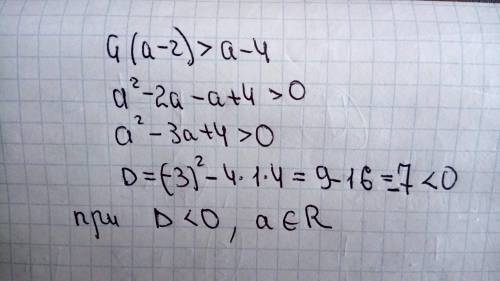 a(a-2)>a-4
a²-2a-a+4>0
a²-3a+4>0
D=(-3)²-4·1·4=9-16=-7<0
при D<0, a∈R